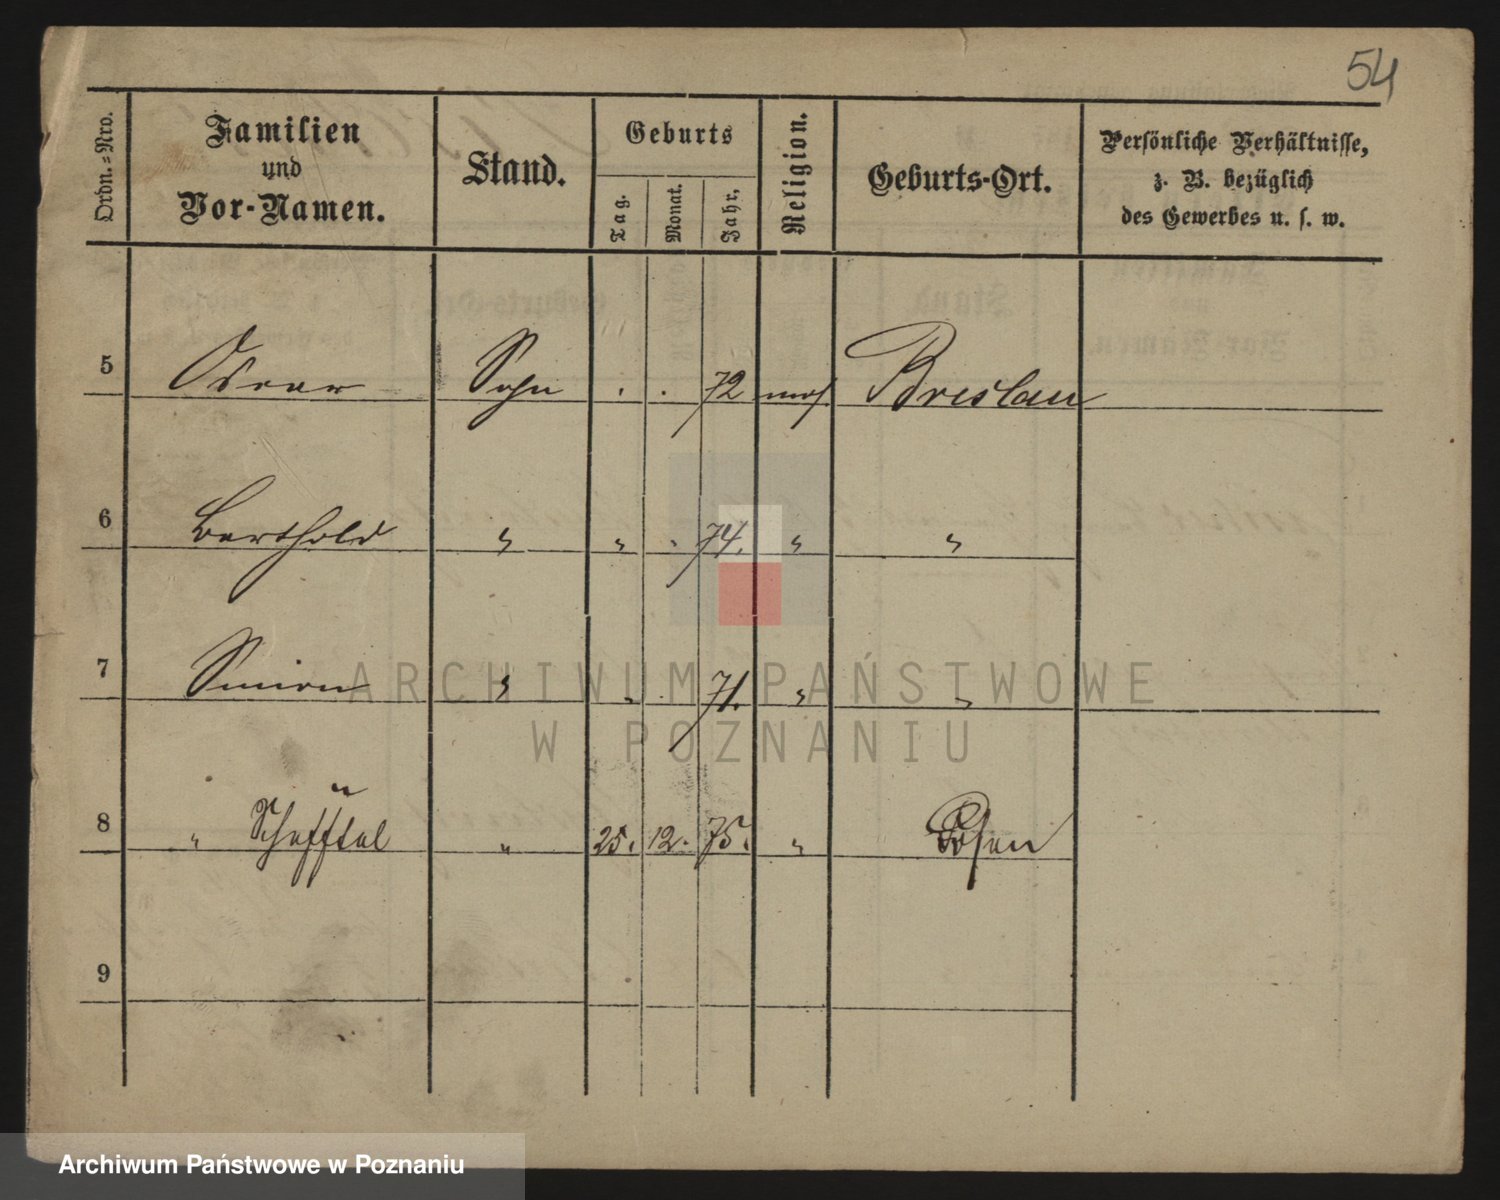 54
Ordn.-Nro.
Familien
und
Vor-Namen.
Stand.
Geburts
Tag.
Monat.
Jahr.
Religion.
Geburts-Ort.
Persönliche Verhältnisse,
z. B. bezüglich
des Gewerbes u. s. w.
5 Oscar Sohn . . 72 mos. Breslau
6 Berthold " " . 74. " "
7 Simon " " . 71. " "
8 " Schefftel " 25. 12. 75. " Posen
9
ARCHIWUM PAŃSTWOWE
W POZNANIU
Archiwum Państwowe w Poznaniu